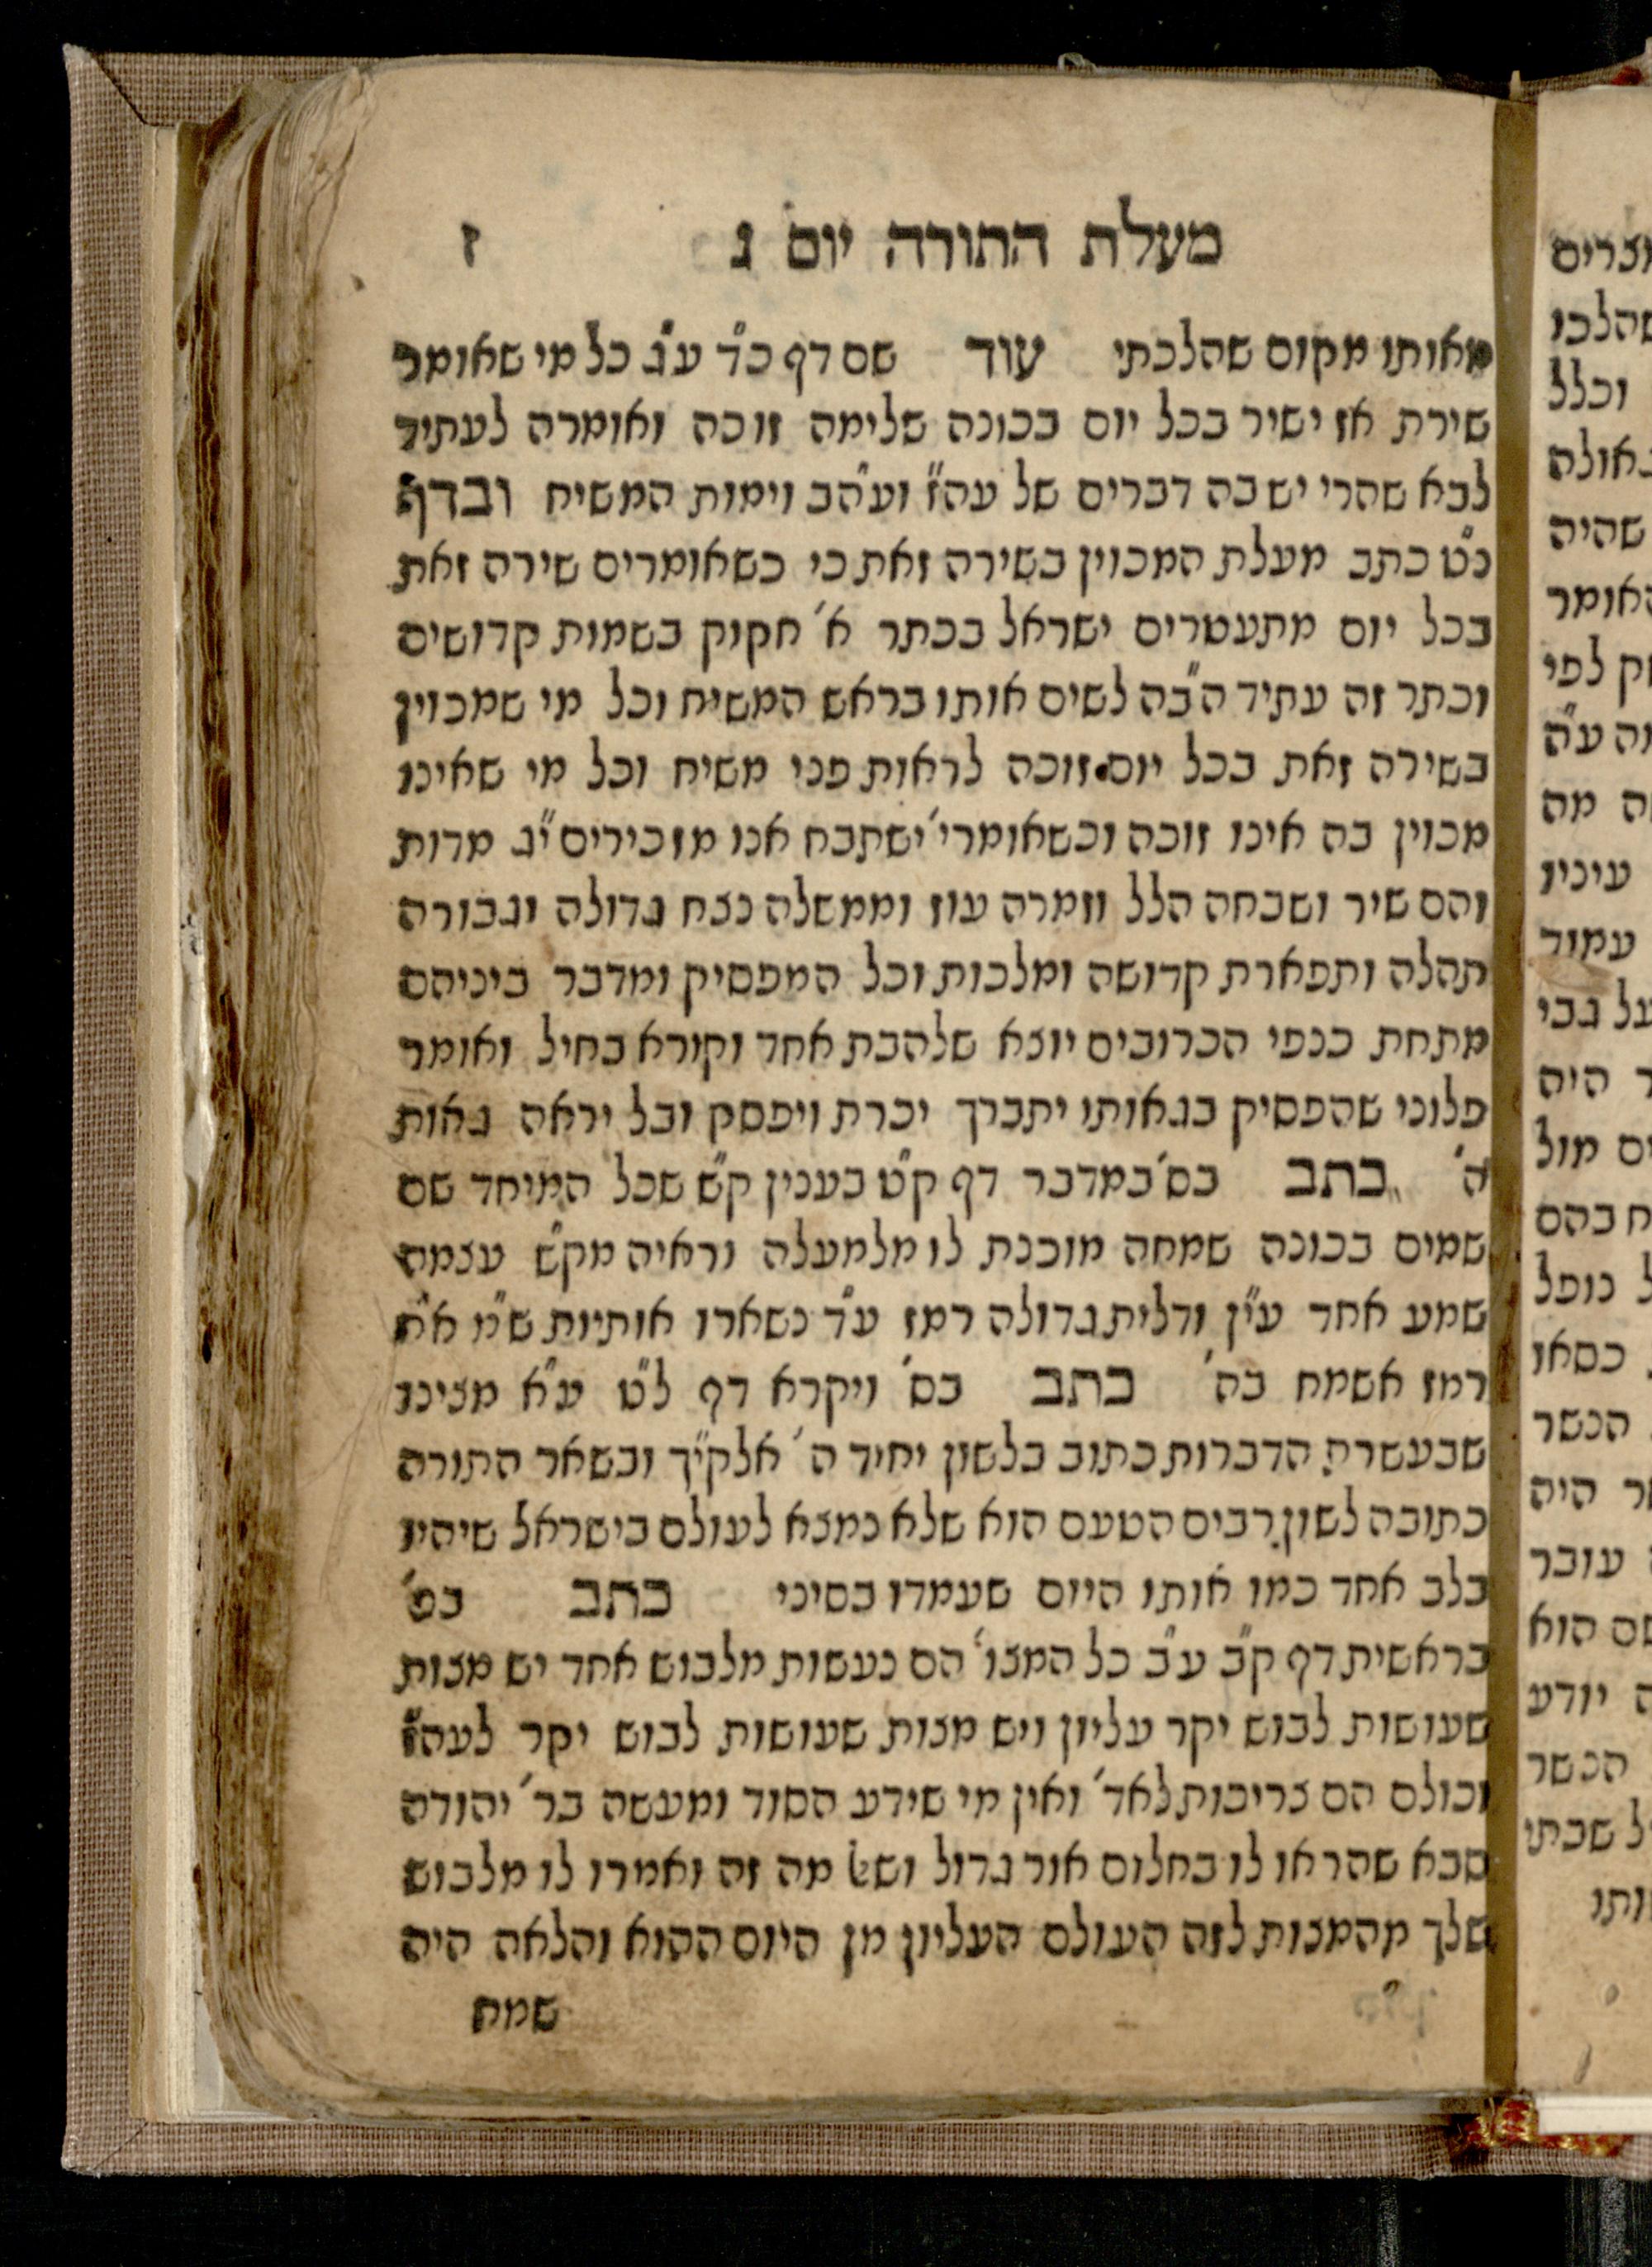 מעלת התורה יום ג ז
מאותו מקום שהלכתי עוד שם דף כ"ד ע"ג כל מי שאומר
שירת אז ישיר בכל יום בכונה שלימה זוכה ואומרה לעתיד
לבא שהרי יש בה דברים של עה"ז וע"הב וימות המשיח ובדף
נ"ט כתב מעלת המכוין בשירה זאת כי כשאומרים שירה זאת
בכל יום מתעטרים ישראל בכתר א' חקוק בשמות קדושים
וכתר זה עתיד ה"בה לשים אותו בראש המשיח וכל מי שמכוין
בשירה זאת בכל יום זוכה לראות פני משיח וכל מי שאינו
מכוין בה אינו זוכה וכשאומרי' ישתבח אנו מזכירים י"ג מדות
והם שיר ושבחה הלל וזמרה עוז וממשלה נצח גדולה וגבורה
תהלה ותפארת קדושה ומלכות וכל המפסיק ומדבר ביניהם
מתחת כנפי הכרובים יוצא שלהבת אחד וקורא בחיל ואומר
פלוני שהפסיק בגאותו יתברך יכרת ויפסק ובל יראה גאות
ה' כתב בס' במדבר דף ק"ט בענין ק"ש שכל המיחד שם
שמים בכונה שמחה מוכנת לו מלמעלה וראיה מק"ש עצמה
שמע אחד ע"ין ודלית גדולה רמז ע"ד נשארו אותיות ש"מ א"ח
רמז אשמח בה' כתב בס' ויקרא דף ל"ט ע"א מצינו
שבעשרת הדברות כתוב בלשון יחיד ה' אלק"יך ובשאר התורה
כתובה לשון רבים הטעם הוא שלא נמצא לעולם בישראל שיהיו
בלב אחד כמו אותו היום שעמדו בסיני כתב בס'
בראשית דף ק"ב ע"ב כל המצו' הם נעשות מלבוש אחד יש מצות
שעושות לבוש יקר עליון ויש מצות שעושות לבוש יקר לעה"ז
וכולם הם צריכות לאד' ואין מי שידע הסוד ומעשה בר' יהודה
סבא שהראו לו בחלום אור גדול ושאל מה זה ואמרו לו מלבוש
שלך מהמצות לזה העולם העליון מן היום ההוא והלאה היה
שמח